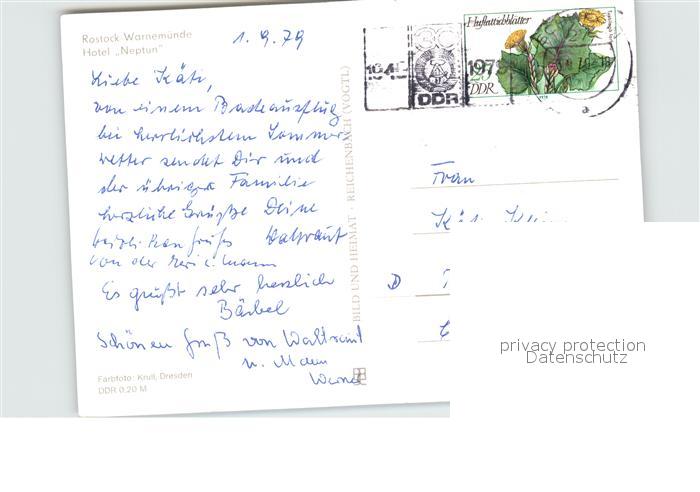 Rostock-Warnemünde
Hotel „Neptun"
1. 9. 79
Liebe Käti,
von einem Badeausflug
bei herrlichstem Sommer
wetter sendet Dir und
der übrigen Familie
herzliche Grüße Deine
Waltraut
von der
Es grüßt sehr herzlich
Bärbel
Schönen Gruß von Waltraut
u. Mann
Werner
Farbfoto: Krull, Dresden
DDR 0,20 M
BILD UND HEIMAT · REICHENBACH (VOGTL)
Huflattichblätter
DDR
DDR
Frau
D
privacy protection
Datenschutz